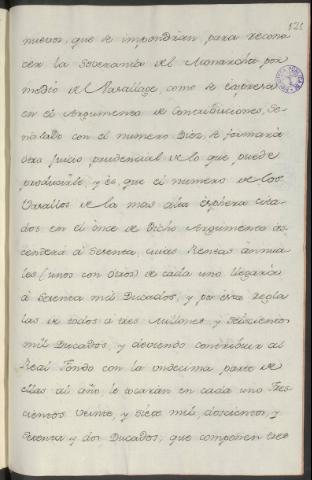 121
nuevos, que se impondrian para recono
cer la Soverania del Monarcha por
medio del Vasallage, como se expresa
en el Argumento de Contribuciones, se
ñalado con el numero Diez, se formaría
otro juicio prudencial de lo que puede
producirle, y es, que el numero de los
Vasallos de la mas alta Esphera cita
dos en el once de dicho Argumento as
cenderá à Setenta, cuias Rentas annua
les (unos con otros) de cada uno llegarán
à Setenta mil Ducados, y por esta regla
las de todos à tres Millones y
mil Ducados, y deviendo contribuir al
Real Fondo con la undecima parte de
ellas al año le tocarán en cada uno Tres
cientos Veinte, y Siete mil, doscientos, y
Setenta y dos Ducados, que componen tres